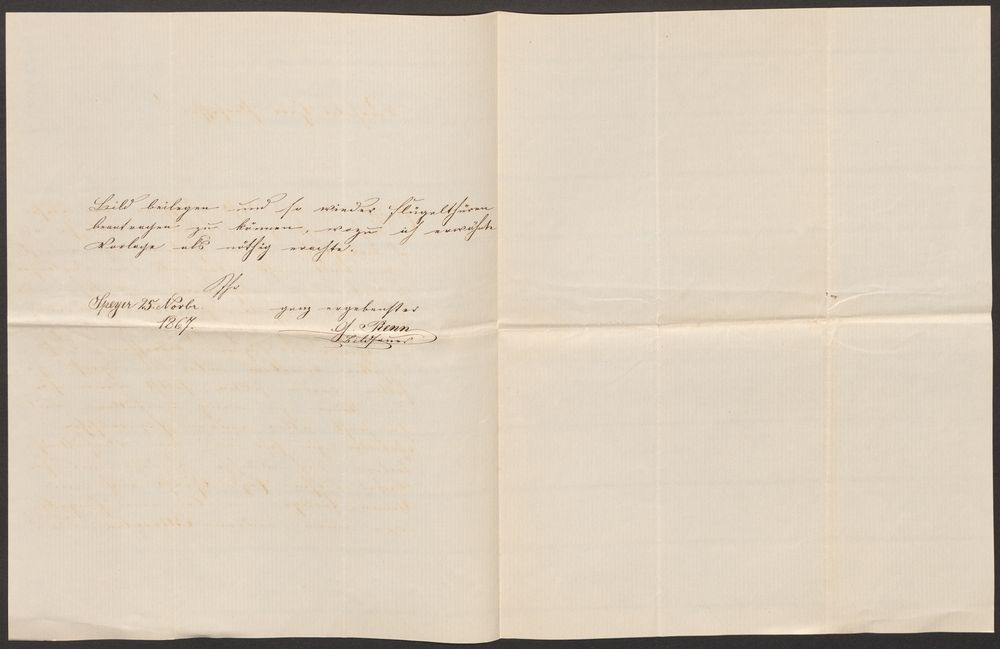 Bild beilegen und so wieder Flügelthüren
beantragen zu können, wozu ich erwähnte
Vorlage als nöthig erachte.
Ihr
Speyer 25. Novbr ganz ergebenster
1867. G. Renn
Bildhauer